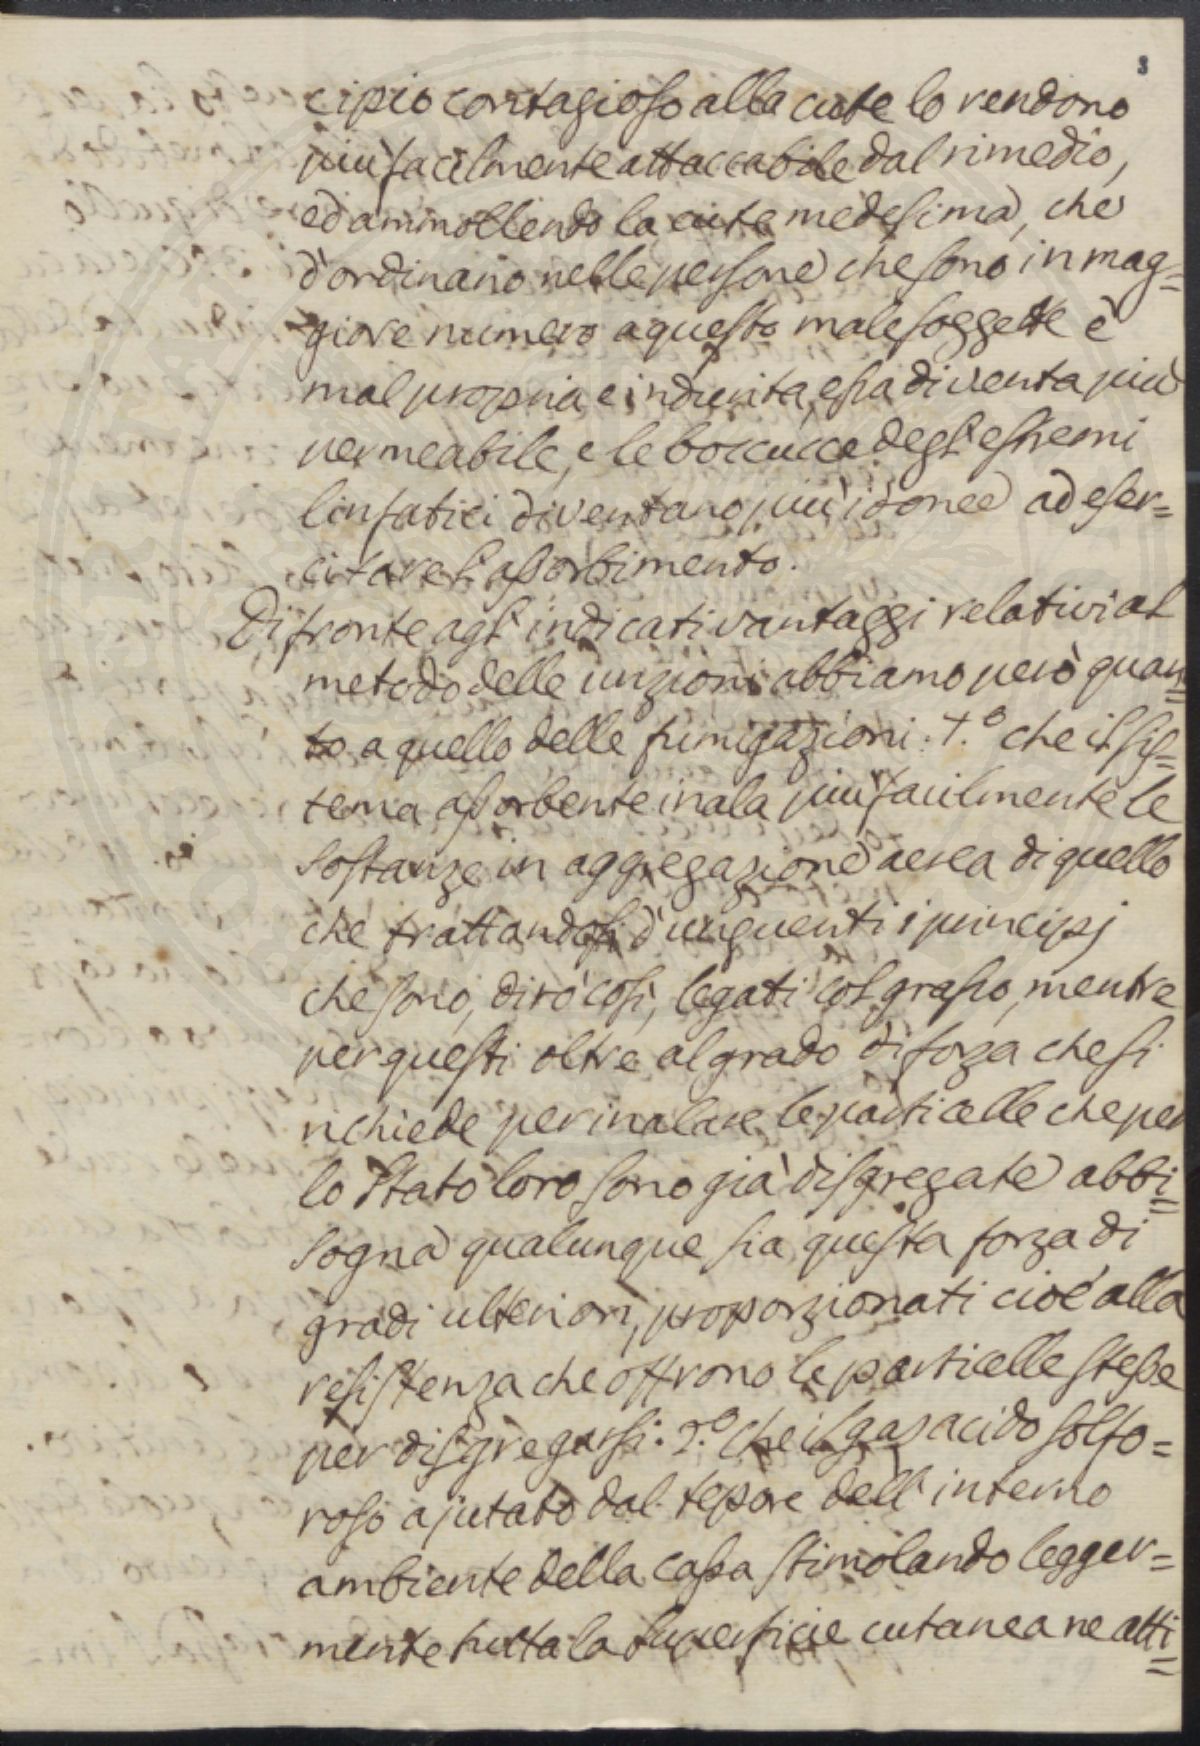 3
cipio contagioso alla cute lo rendono
più facilmente attaccabile dal rimedio,
ed ammollendo la cute medesima, che
d'ordinario nelle persone che sono in mag=
giore numero a questo male soggette è
mal propria, e indurita, essa diventa più
permeabile, e le boccucce degl'estremi
linfatici diventano più idonee ad eser=
citare l'assorbimento.
Di fronte agl'indicati vantaggi relativi al
metodo delle unzioni abbiamo però quan=
to a quello delle fumigazioni: 1.° che il sis=
tema assorbente inala più facilmente le
sostanze in aggregazione aerea di quello
che trattandosi d'unguenti i principj
che sono, dirò così, legati col grasso, mentre
per questi oltre al grado di forza che si
richiede per inalare le particelle che per
lo stato loro sono già disgregate abbi=
sogna qualunque sia questa forza di
gradi ulteriori, proporzionati cioè alla
resistenza che offrono le particelle stesse
per disgregarsi: 2.° Che il gas acido solfo=
roso ajutato dal tepore dell'interno
ambiente della cassa stimolando legger=
mente tutta la superficie cutanea ne atti=